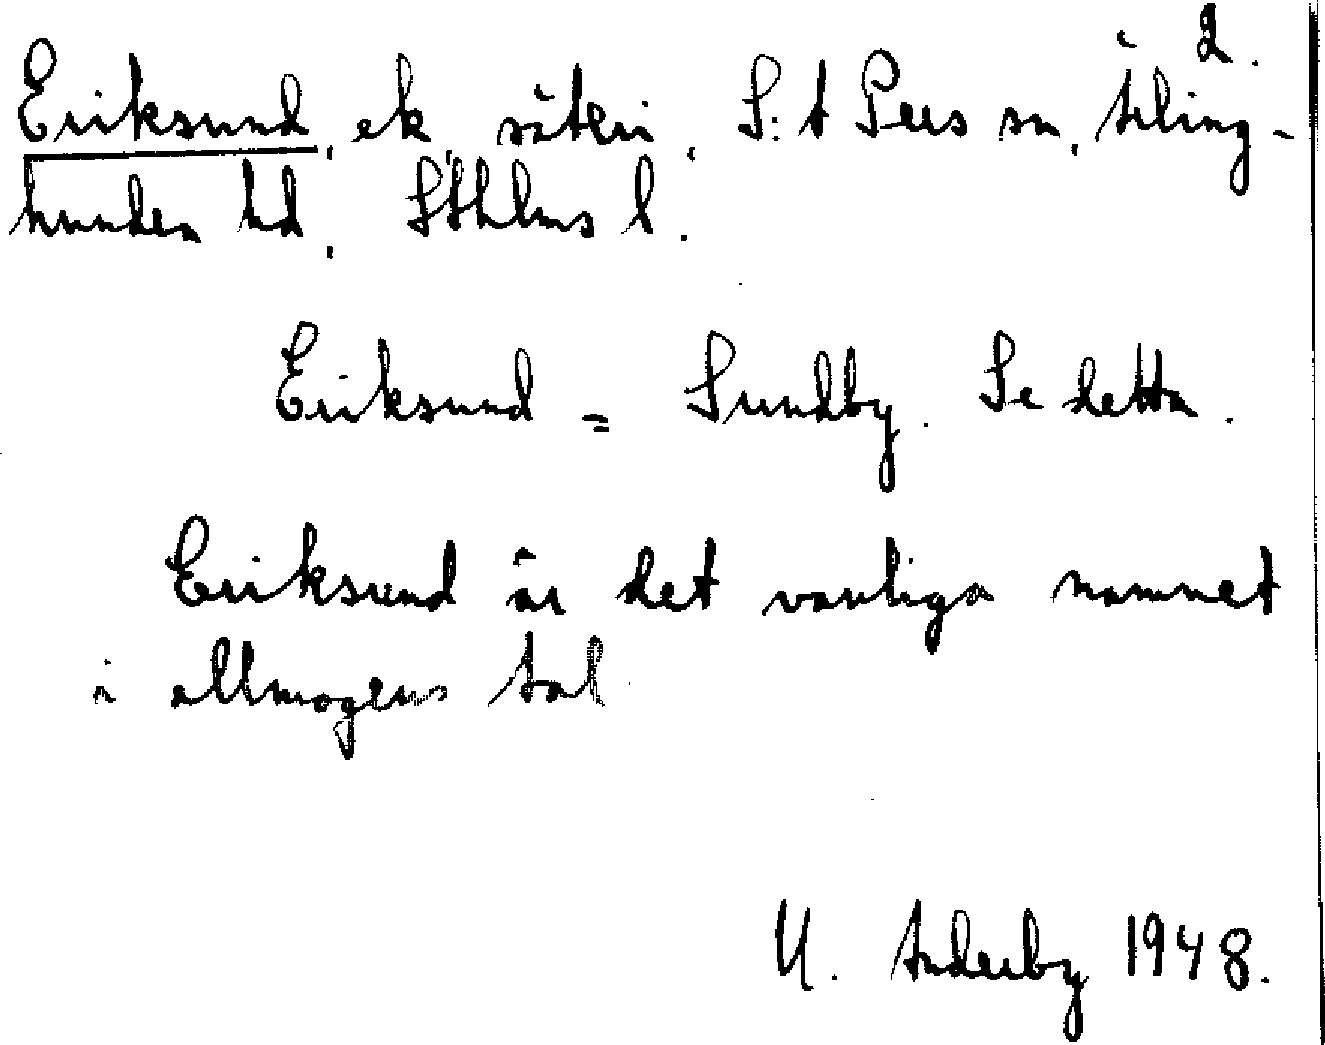 2.
Eriksund, ek, säteri, S:t Pers sn, Ärling-
hundra hd, Sthlms l.
Eriksund = Sundby. Se detta.
Eriksund är det vanliga namnet
i allmogens tal
U. Anderby 1948.